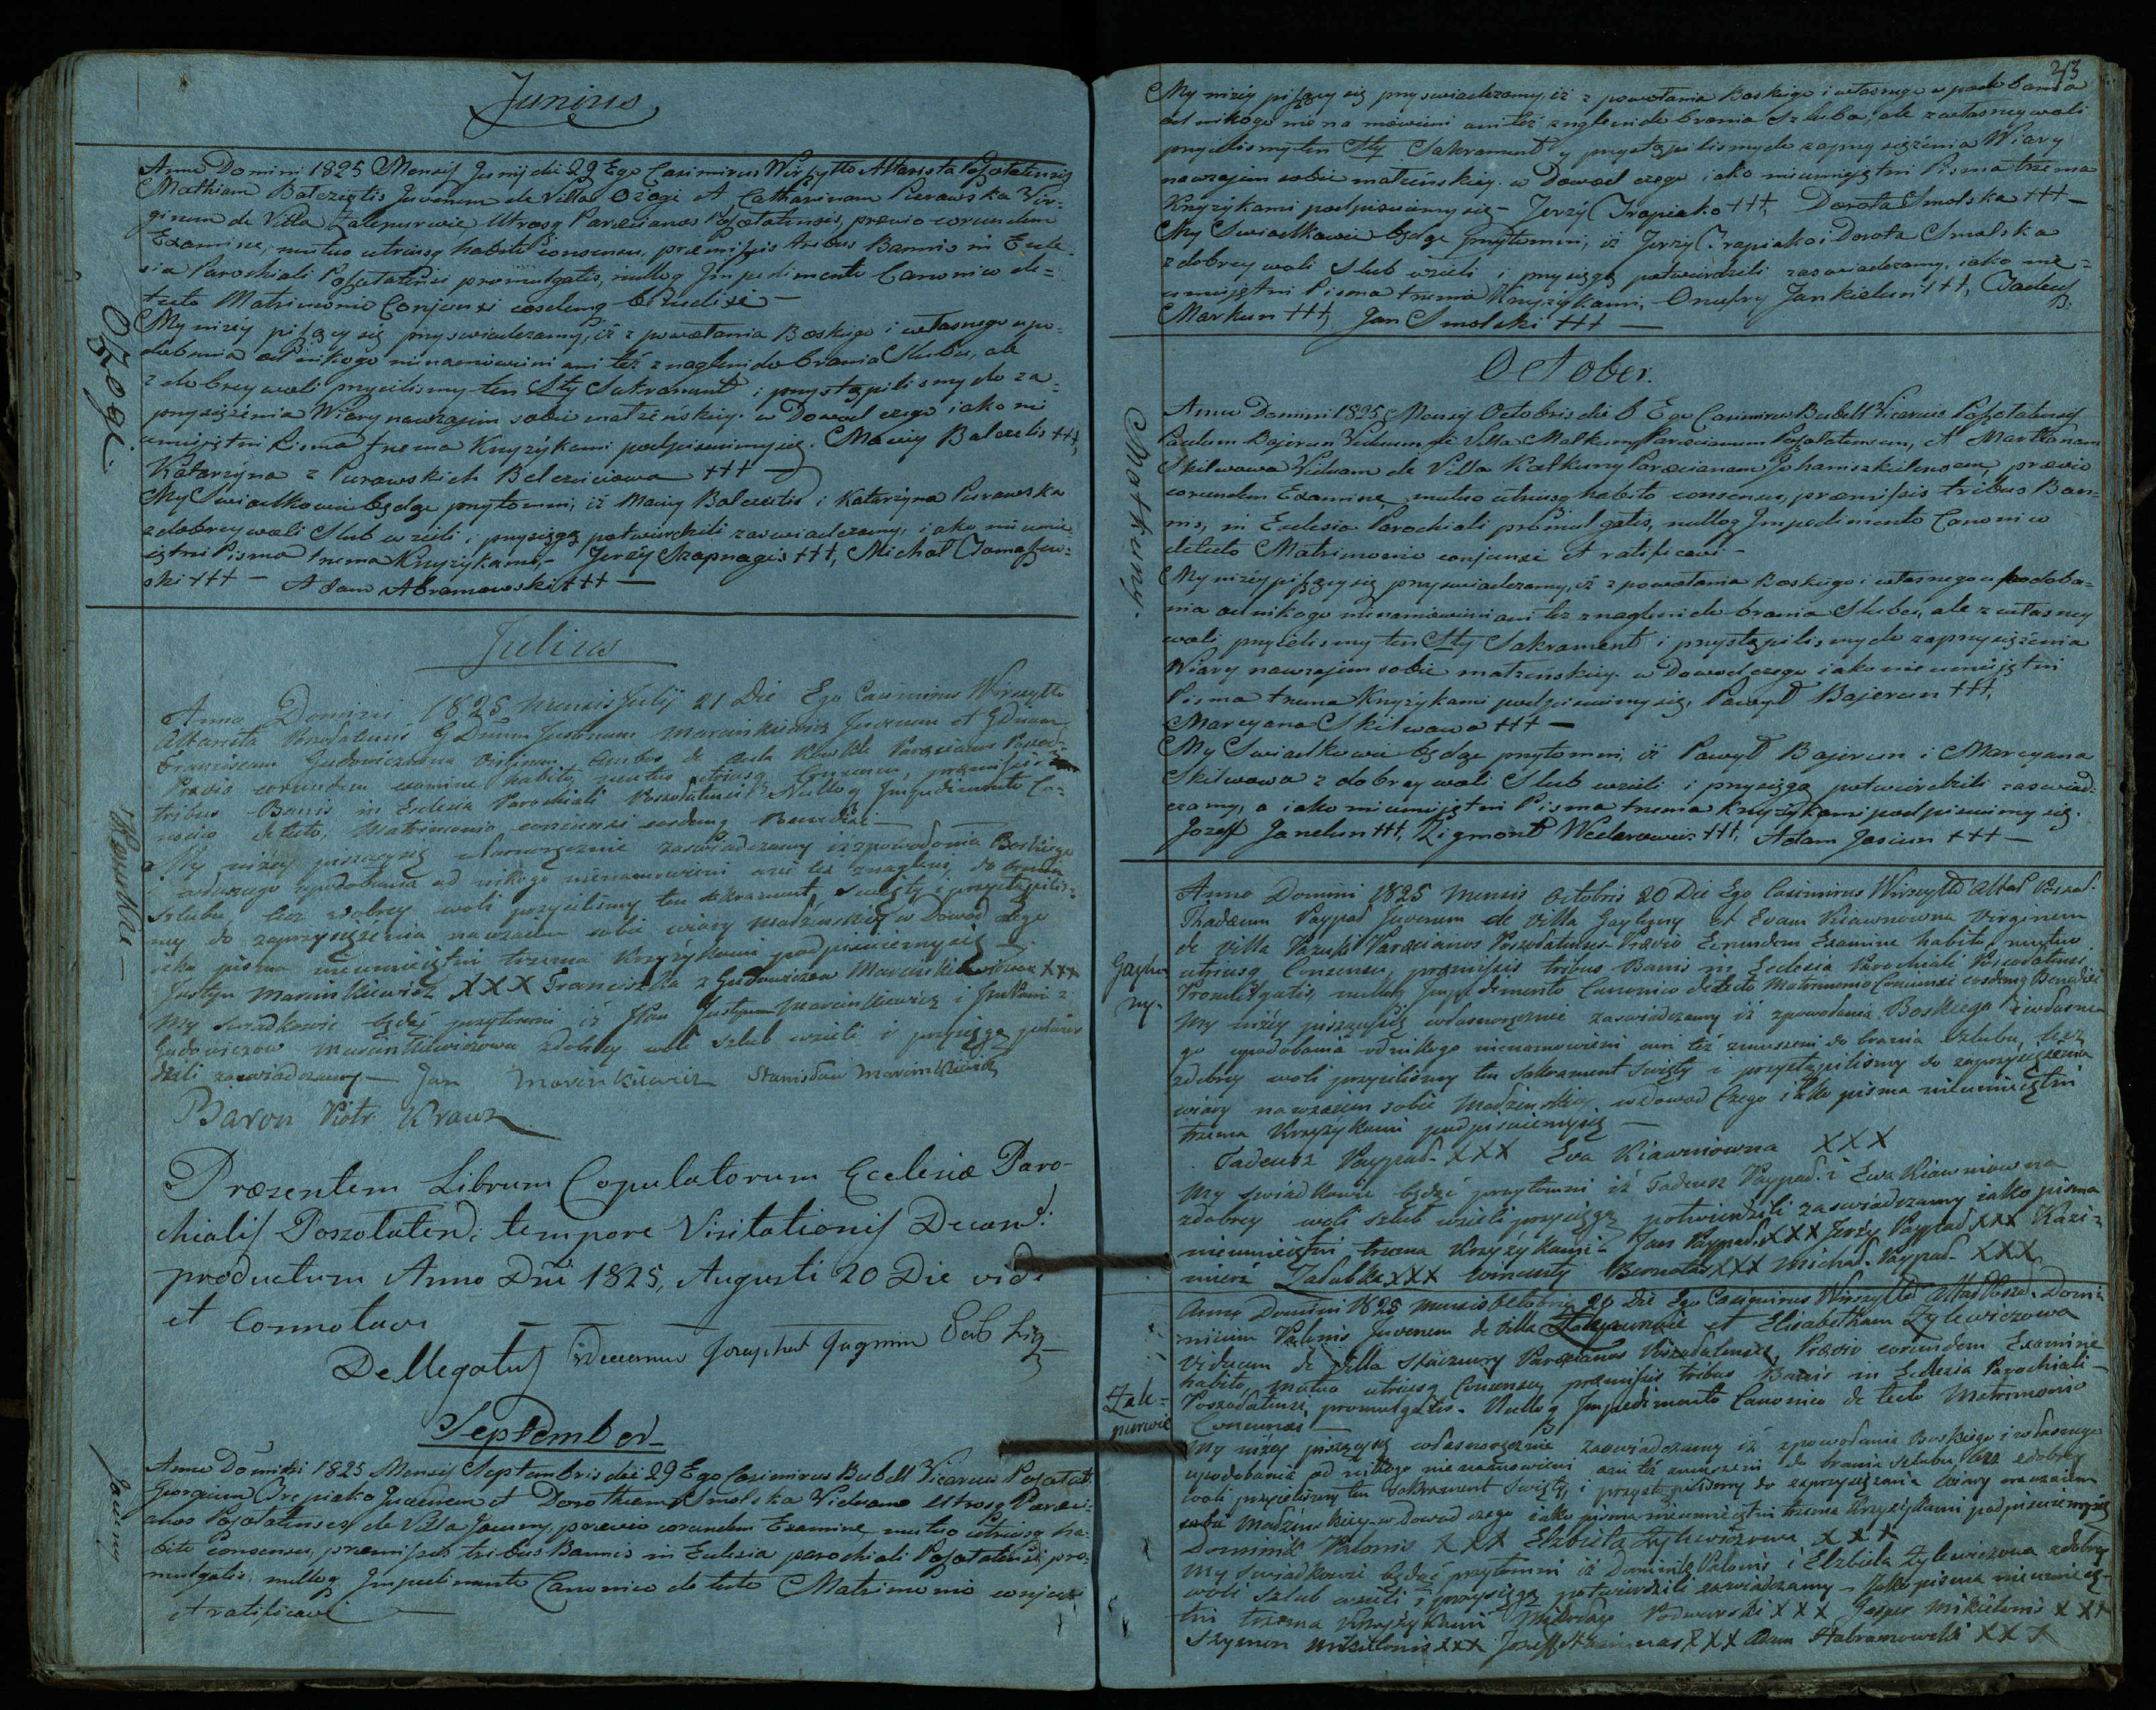 Junius
Anno Domini 1825 Mensis Junij die 29 Ego Casimirus Wirszytto Altarista Poszołatensis
Mathiam Balczeitis Juvenem de Villa Ożogi et Catharinam Purawska Vir-
ginem de Villa Załepurwie Utrosq Parœcianos Poszołatenses, prævio eorundem
Examine, mutuo utriusq habito consensu, præmissis tribus Bannis in Eccle-
sia Parochiali Poszołatensi promulgatis, nulloq Impedimento Canonico de=
tecto Matrimonio Conjunxi eosdemq benedixi —
Ożogi.
My niżey piszący się przyswiadczamy, iż z powołania Boskiego i własnego upo=
dobania od nikogo nienamowieni ani też znagleni do brania Slubu, ale
z dobrey woli przyielismy ten Sty Sakrament i przystąpilismy do za=
przysiężenia Wiary nawzajem sobie matżeńskiey. w Dowod czego iako nie
umiejętni Pisma trzema Krzyżykami podpisuiemy się. Maciey Balczeitis +++,
Katarzyna z Purawskich Balczeiciowa +++ —
My Swiadkowie będąc przytomni, iż Maciey Balczeitis i Katarzyna Purawska
z dobrey woli Slub wzieli i przysięgą potwierdzili zaswiadczamy, iako nieumie-
iętni Pisma trzema Krzyżykami,- Jerzy Szapnagis +++, Michał Tomaszew=
ski +++ — Adam Abramowski +++ —
Julius
Anno Domini 1825 mensis Julij 21 Die Ego Casimirus Wirszytto
Altarista Poszołatensis GDnum Justinum Marcinkiewicz Juvenem et GDnam
Franciscam Gudowiczowna Virginem Ambos de Aula Parœcianos Poszoł-
Prævio eorundem examine habito, mutuo utriusq Consensu, præmissis
tribus Banis in Eclesia Parochiali Poszołatensi Nulloq Impedimento Ca=
nonico detecto, Matrimonio coniunxi eosdemq Benedixi —
My niżey piszący się własnoręcznie zaswiadczamy iż z powołania Boskiego
i własnego upodobania od nikogo nienamowieni ani też znagleni do brania
Szlubu, lecz z dobrey woli przyieliśmy ten Sakrament Swięty i przystąpilis=
my do zaprzysiężenia nawzaiem sobie wiary Madżenskiey w Dowod czego
iako pisma nieumieiętni trzema Krzyżykami podpisuiemy się —
Justyn Marcinkiewicz XXX Franciszka z Gudowiczow Marcinkiewiczowa XXX
My swiadkowie będąć przytomni iż Pan Justyn Marcinkiewicz i Pani z
Gudowiczow Marcinkiewiczowa z dobrey woli szlub wzieli i przysięgą potwier
dzili zaswiadczamy — Jan Marcinkiewicz Stanisław Marcinkiewicz
Baron Piotr Kraus
Præsentem Librum Copulatorum Ecclesiæ Paro-
chialis Poszołaten: tempore Visitationis Decan:
productum Anno Dni 1825, Augusti 20 Die vidi
et Connotavi —
Dellegatus
September
Anno Domini 1825 Mensis Septembris die 29 Ego Casimirus Bubell Vicarius Poszołat:
Georgium Trepiako Juvenem et Dorotheam Smolska Viduam Utrosq Parœci=
anos Poszołatenses de Villa Jawny, prævio eorundem Examine mutuo utriusq ha=
bito consensu, præmissis tribus Bannis in Eclesia parochiali Poszołatensi pro=
mulgatis, nulloq Impedimento Canonico detecto Matrimonio conjunxi
et ratificavi —
Jawny
23
My niżey piszący się przyswiadczamy, iż z powołania Boskiego i własnego upodobania
od nikogo nie na mowieni ani też znagleni do brania Szluba, ale z własney woli
przyielismy ten Sty Sakrament y przystąpilismy do zaprzysiężenia Wiary
nawzajem sobie matżeńskiey. w Dowod czego iako nieumiejętni Pisma trzema
Krzyżykami podpisuiemy się — Jerzy Trapiako +++, Dorota Smolska +++ —
My Swiadkowie będąc przytomni, iż Jerzy Trapiako i Dorota Smolska
z dobrey woli Slub wzieli i przysięgą potwierdzili zaswiadczamy, iako nie=
umiejętni Pisma trzema Krzyżykami, Onufry Jankielun +++, Tadeusz
Markun +++, Jan Smolski +++ —
October.
Małkuny.
Anno Domini 1825 Mensis Octobris die 6 Ego Casimirus Bubell Vicarius Poszołatensis
Paulum Bajerun Viduum de Villa Małkuny Parœcianum Poszołatensem, et Martianam
Skilwowa Viduam de Villa Kałkuny Parœcianam Johaniszkielensem, prævio
eorundem Examine, mutuo utriusq habito consensu, præmissis tribus Ban=
nis, in Eclesia Parochiali promulgatis, nulloq Impedimento Canonico
detecto Matrimonio conjunxi et ratificavi —
My niżey piszący się przyswiadczamy, iż z powołania Boskiego i własnego upodoba=
nia od nikogo nienamowieni ani też znagleni do brania Slubu, ale z własney
woli przyielismy ten Sty Sakrament i przystąpilismy do zaprzysiężenia
Wiary nawzajem sobie matżeńskiey. w Dowod czego iako nie umiejętni
Pisma trzema Krzyżykami podpisuiemy się, Pawył Bajerun +++,
Marcyana Skilwowa +++ —
My Swiadkowie będąc przytomni, iż Pawył Bajerun i Marcyana
Skilwowa z dobrey woli Slub wzieli i przysięgą potwierdzili zaswiad=
czamy, a iako nieumiejętni Pisma trzema krzyżykami podpisuiemy się.
Jozeff Janelun +++, Zigmont Weclarowicz +++, Adam Jasiun +++ —
Anno Domini 1825 Mensis Octobris 20 Die Ego Casimirus Wirszytto Altar Poszoł.
Thadæum Paypad Juvenem de Villa Gayluny et Evam Kiawnowna Virginem
de Villa Parœcianos Poszołatenses Prævio Eorundem Examine habito, mutuo
utriusq Consensu, præmissis tribus Banis in Eclesia Parochiali Poszołatensi
Promulgatis, nulloq Impedimento Canonico detecto Matrimonio Coniunxi eosdemq Benedixi
My niżey piszący się własnoręcznie zaswiadczamy iż z powołania Boskiego i własne
go upodobania od nikogo nienamowieni ani też zmuszeni do brania Szlubu, lecz
z dobrey woli przyieliśmy ten Sakrament Swięty i przystąpilismy do zaprzysiężenia
wiary nawzaiem sobie Madżenskiey w dowod Czego iako pisma nieumieiętni
trzema Krzyżykami podpisuiemy się —
Tadeusz Paypad XXX Eva Kiawniowna XXX
My swiadkowie będąć przytomni iż Tadeusz Paypad i Ewa Kiawniowna
z dobrey woli szlub wzieli przysięgą potwierdzili zaswiadczamy iako pisma
nieumieiętni trzema Krzyżykami — Jan Paypad XXX Jerzy Paypad XXX Kazi=
mierz Zalubka XXX Wincenty Bernotas XXX Michał Paypad XXX
Załe=
purwie
Anno Domini 1825 Mensis Octobris 20 Die Ego Casimirus Wirszytto Altar Poszoł. Domi=
nicum Palonis Juvenem de Villa Załepurwie et Elisabetham Zylewiczowa
Viduam de Villa Parœcianos Poszołatenses, Prævio eorundem Examine
habito, mutuo utriusq Consensu, præmissis tribus Banis in Eclesia Parochiali
Poszołatensi promulgatis. Nulloq Impedimento Canonico detecto Matrimonio
Coniunxi —
My niżey piszący się własnoręcznie zaswiadczamy iż z powołania Boskiego i własnego
upodobania od nikogo nienamowieni ani też zmuszeni do brania szlubu, lecz z dobrey
woli przyieliśmy ten Sakrament Swięty, i przystąpilismy do zaprzysiężenia wiary nawzaiem
sobie Madżenskiey w Dowod czego iako pisma nieumieiętni trzema Krzyżykami podpisuiemy się
Dominik Palonis XXX Elżbieta Zylewiczowa XXX
My swiadkowie będąć przytomni iż Dominik Palonis i Elżbieta Zylewiczowa z dobrey
woli szlub wzieli i przysięgą potwierdzili zaswiadczamy — Jako pisma nieumieię-
tni trzema Krzyżykami Mikołay Podworski XXX Jasper Mikielonis XXX
Szymon Mikielonis XXX Jozeff XXX Adam Habramowski XXX